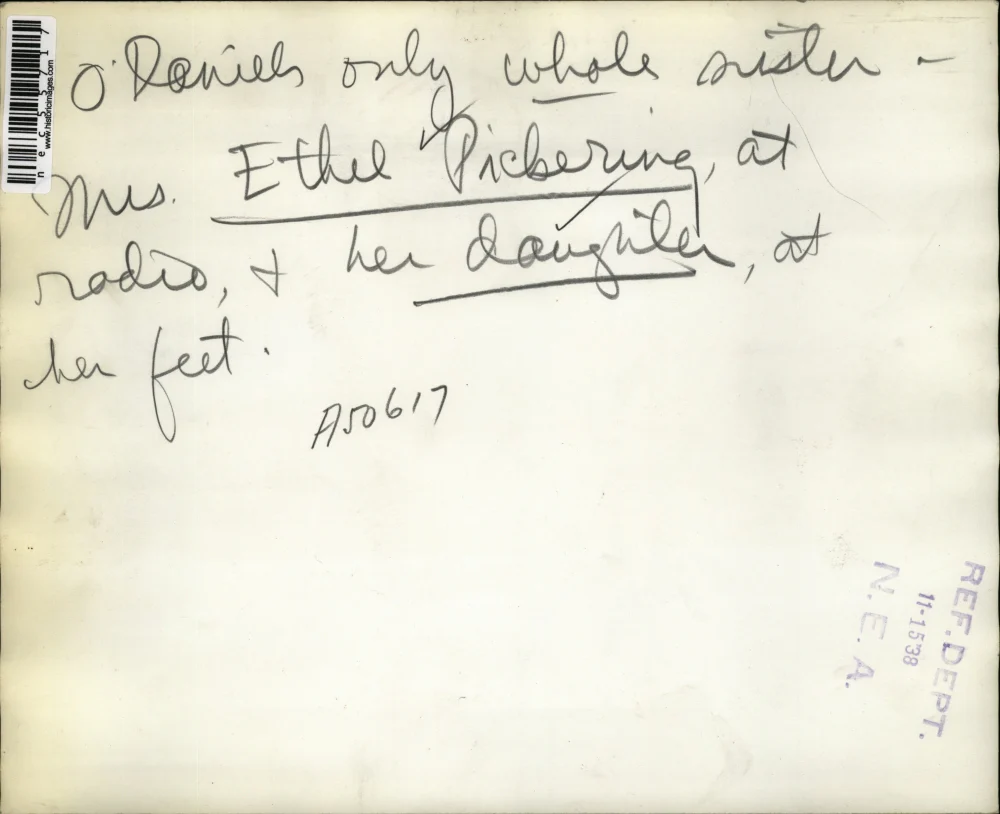 O'Daniels only whole sister -
Mrs. Ethel Pickering, at
radio, & her daughter, at
her feet.
A50617
REF. DEPT.
11-1538
N.E.A.
www.historicimages.com